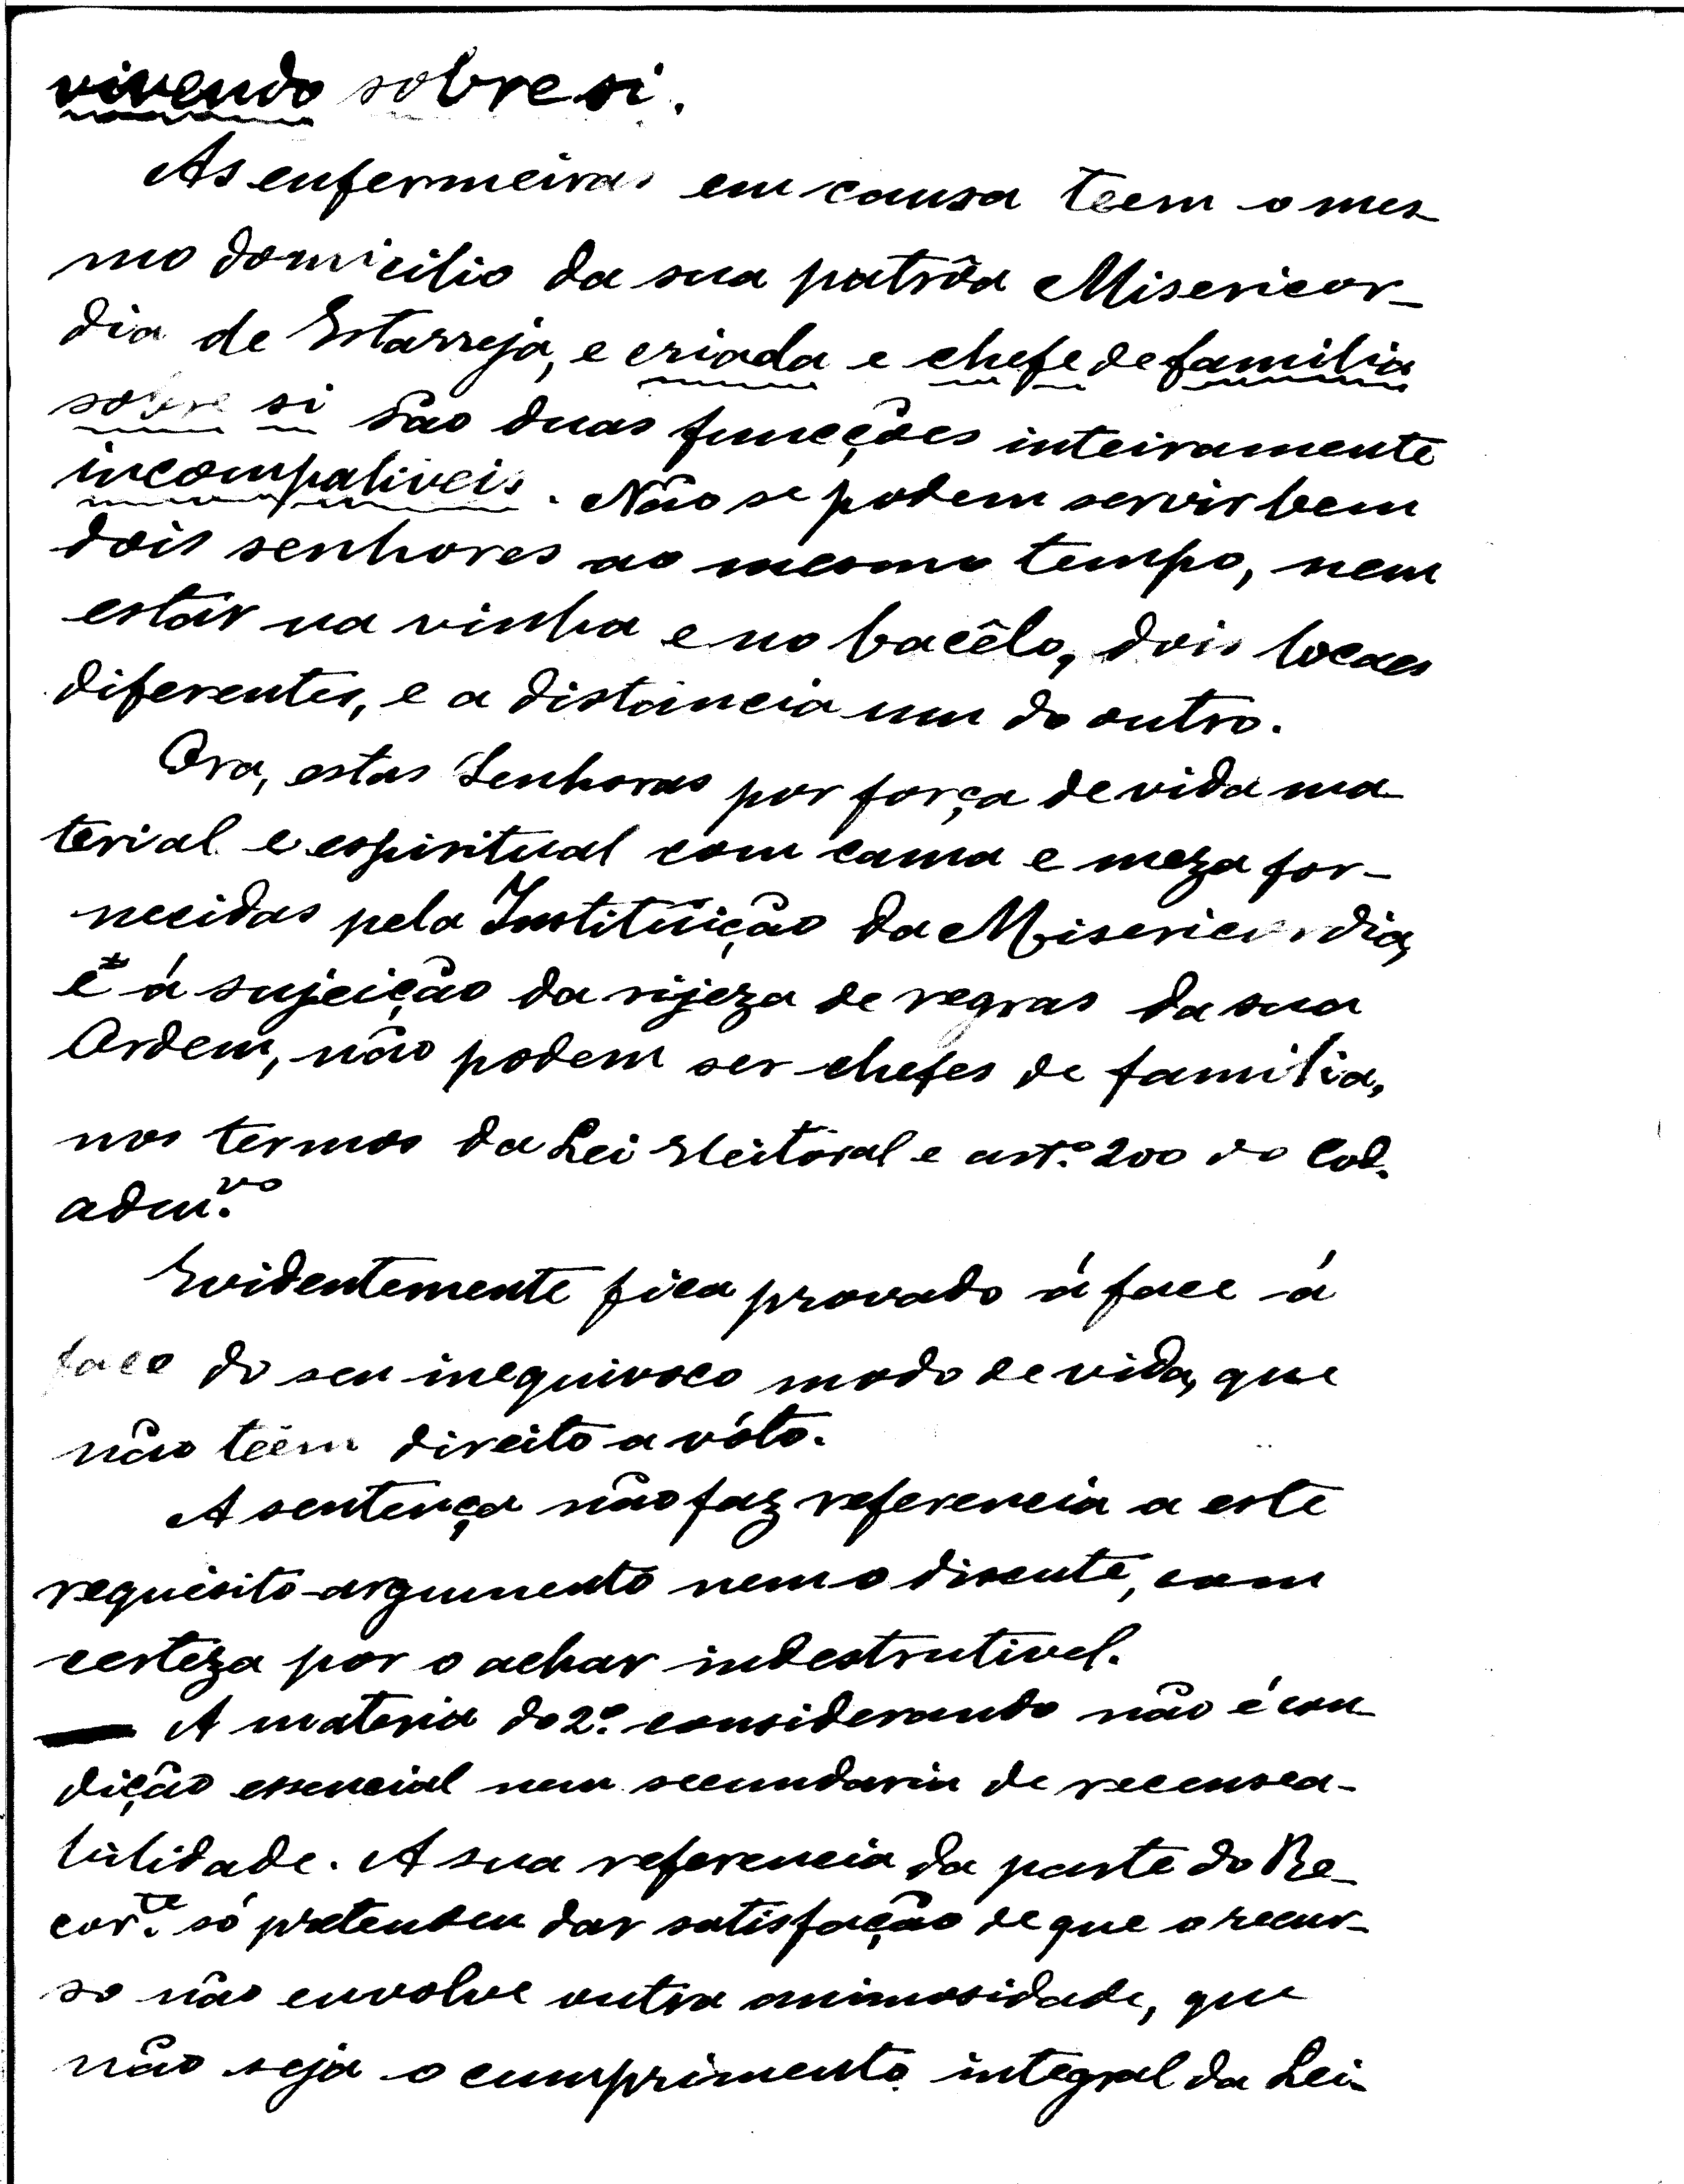 vivendo sobre si.
As enfermeiras em causa teem o mes-
mo domicilio da sua patrôa Misericor-
dia de Estarreja, e criada e chefe de familia
sobre si são duas funcções inteiramente
incompativeis. Não se podem servir bem
dois senhores ao mesmo tempo, nem
estár na vinha e no bacêlo, dois locaes
diferentes, e a distância um do outro.
Ora, estas Senhoras por força de vida ma-
terial e espiritual com cama e meza for-
necidas pela Instituição da Misericordia,
e á sujeição da rijeza de regras da sua
Ordem, não podem ser chefes de familia,
nos termos da Lei Eleitoral e art.º 200 do Cod.
adm.vo
Evidentemente fica provado á face á
face do seu inequivoco modo de vida, que
não teem direito a vóto.
A sentença não faz referencia a este
requisito-argumento nem o discute, com
certeza por o achar indestrutivel.
— A materia do 2º. considerando não é con-
dição essencial nem secundaria de recensea-
bilidade. A sua referencia da parte do Re-
cor.te só pretendeu dar satisfação de que o recur-
so não envolve outra animosidade, que
não seja o cumprimento integral da Lei.